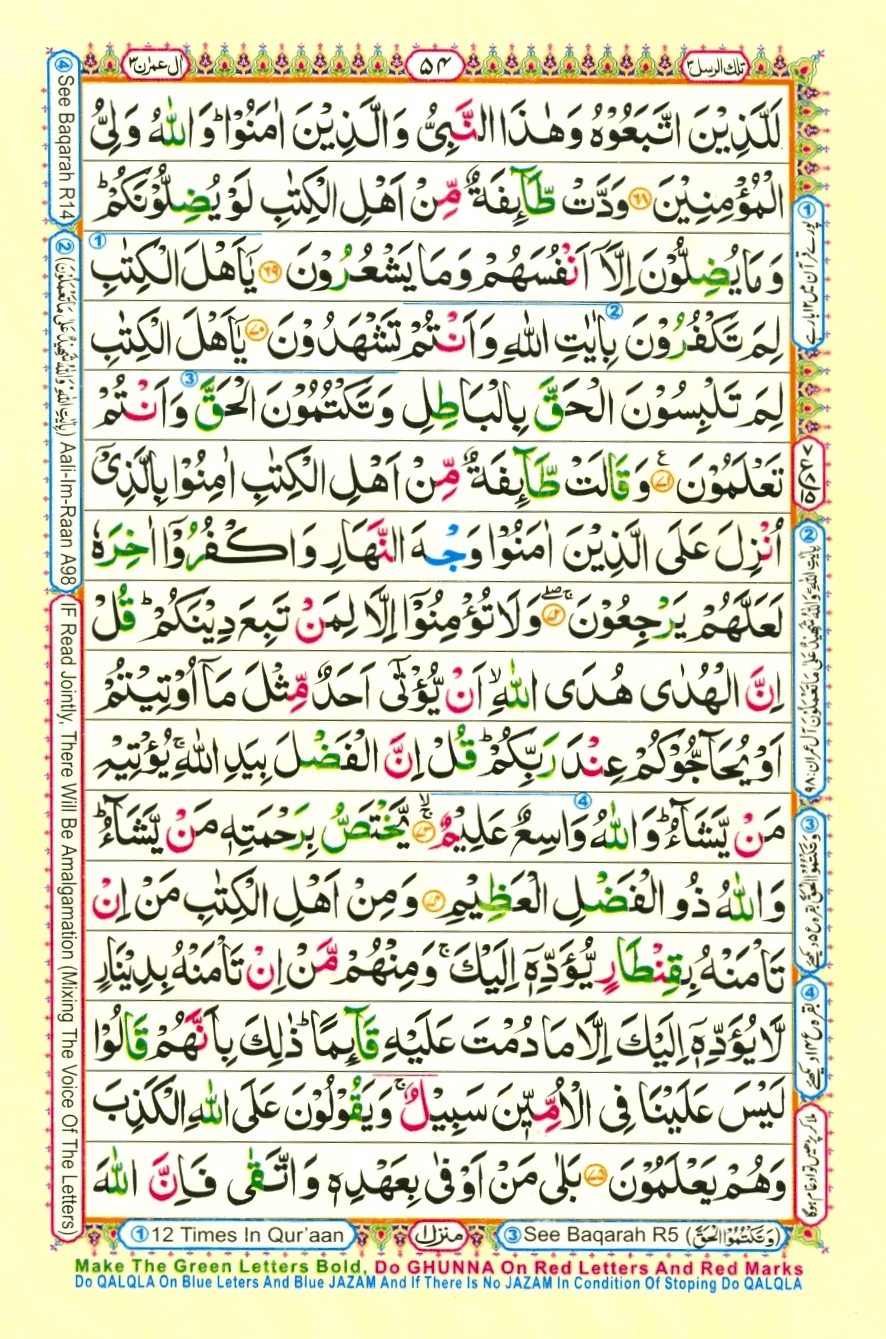 تلك الرسل ٣
۵۴
اٰل عمرٰن ٣
لَلَّذِيْنَ اتَّبَعُوْهُ وَهٰذَا النَّبِىُّ وَالَّذِيْنَ اٰمَنُوْا ؕ وَاللّٰهُ وَلِىُّ
الْمُؤْمِنِيْنَ ﴿۶۸﴾ وَدَّتْ طَّآئِفَةٌ مِّنْ اَهْلِ الْكِتٰبِ لَوْ يُضِلُّوْنَكُمْ ؕ
وَمَا يُضِلُّوْنَ اِلَّاۤ اَنْفُسَهُمْ وَمَا يَشْعُرُوْنَ ﴿۶۹﴾ يٰۤاَهْلَ الْكِتٰبِ
لِمَ تَكْفُرُوْنَ بِاٰيٰتِ اللّٰهِ وَاَنْتُمْ تَشْهَدُوْنَ ﴿۷۰﴾ يٰۤاَهْلَ الْكِتٰبِ
لِمَ تَلْبِسُوْنَ الْحَقَّ بِالْبَاطِلِ وَتَكْتُمُوْنَ الْحَقَّ وَاَنْتُمْ
تَعْلَمُوْنَ ﴿۷۱﴾ وَقَالَتْ طَّآئِفَةٌ مِّنْ اَهْلِ الْكِتٰبِ اٰمِنُوْا بِالَّذِىْۤ
اُنْزِلَ عَلَى الَّذِيْنَ اٰمَنُوْا وَجْهَ النَّهَارِ وَاكْفُرُوْۤا اٰخِرَهٗ
لَعَلَّهُمْ يَرْجِعُوْنَ ﴿۷۲﴾ وَلَا تُؤْمِنُوْۤا اِلَّا لِمَنْ تَبِعَ دِيْنَكُمْ ؕ قُلْ
اِنَّ الْهُدٰى هُدَى اللّٰهِ ۙ اَنْ يُّؤْتٰٓى اَحَدٌ مِّثْلَ مَاۤ اُوْتِيْتُمْ
اَوْ يُحَآجُّوْكُمْ عِنْدَ رَبِّكُمْ ؕ قُلْ اِنَّ الْفَضْلَ بِيَدِ اللّٰهِ ۚ يُؤْتِيْهِ
مَنْ يَّشَآءُ ؕ وَاللّٰهُ وَاسِعٌ عَلِيْمٌ ﴿۷۳﴾ يَّخْتَصُّ بِرَحْمَتِهٖ مَنْ يَّشَآءُ ؕ
وَاللّٰهُ ذُو الْفَضْلِ الْعَظِيْمِ ﴿۷۴﴾ وَمِنْ اَهْلِ الْكِتٰبِ مَنْ اِنْ
تَاْمَنْهُ بِقِنْطَارٍ يُّؤَدِّهٖۤ اِلَيْكَ ۚ وَمِنْهُمْ مَّنْ اِنْ تَاْمَنْهُ بِدِيْنَارٍ
لَّا يُؤَدِّهٖۤ اِلَيْكَ اِلَّا مَا دُمْتَ عَلَيْهِ قَآئِمًا ؕ ذٰلِكَ بِاَنَّهُمْ قَالُوْا
لَيْسَ عَلَيْنَا فِى الْاُمِّيّٖنَ سَبِيْلٌ ۚ وَيَقُوْلُوْنَ عَلَى اللّٰهِ الْكَذِبَ
وَهُمْ يَعْلَمُوْنَ ﴿۷۵﴾ بَلٰى مَنْ اَوْفٰى بِعَهْدِهٖ وَاتَّقٰى فَاِنَّ اللّٰهَ
① پورے قرآن میں ۱۲ بار ہے
② بِاٰيٰتِ اللّٰهِ وَاللّٰهُ شَهِيْدٌ عَلٰى مَا تَعْمَلُوْنَ اٰل عمران: ۹۸
③ وَتَكْتُمُوا الْحَقَّ بقرہ ع ۵ دیکھئے
④ بقرہ ع ۱۴ دیکھئے
ملا کر پڑھیں تو ادغام ہوگا
④ See Baqarah R14
② (بِاٰيٰتِ اللّٰهِ وَاللّٰهُ شَهِيْدٌ عَلٰى مَا تَعْمَلُوْنَ) Aali-Im-Raan A98
IF Read Jointly, There Will Be Amalgamation (Mixing The Voice Of The Letters)
① 12 Times In Qur'aan
منزل
③ See Baqarah R5 (وَتَكْتُمُوا الْحَقَّ)
Make The Green Letters Bold, Do GHUNNA On Red Letters And Red Marks
Do QALQLA On Blue Leters And Blue JAZAM And If There Is No JAZAM In Condition Of Stoping Do QALQLA